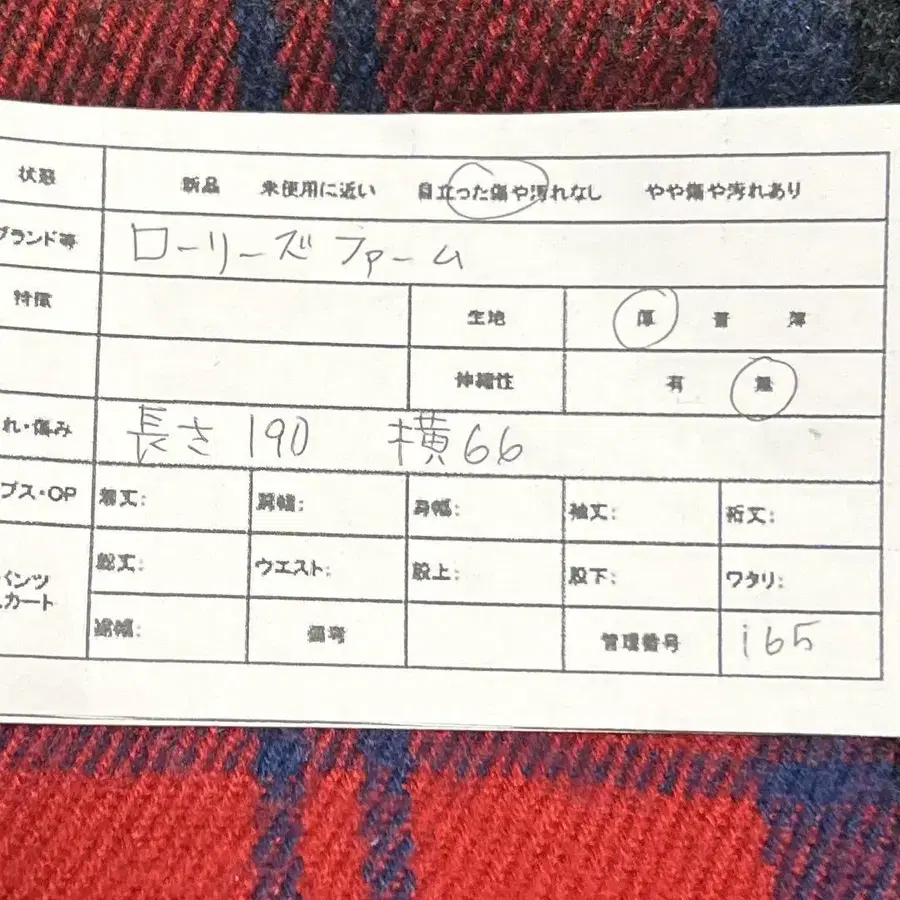 状態 新品 未使用に近い 目立った傷や汚れなし やや傷や汚れあり
ブランド等 ローリーズファーム
特徴 生地 厚 普 薄
伸縮性 有 無
れ・傷み 長さ190 横66
プス・OP 着丈: 肩幅: 身幅: 袖丈: 裄丈:
パンツ 総丈: ウエスト: 股上: 股下: ワタリ:
スカート
裾幅: 備考 管理番号 i65